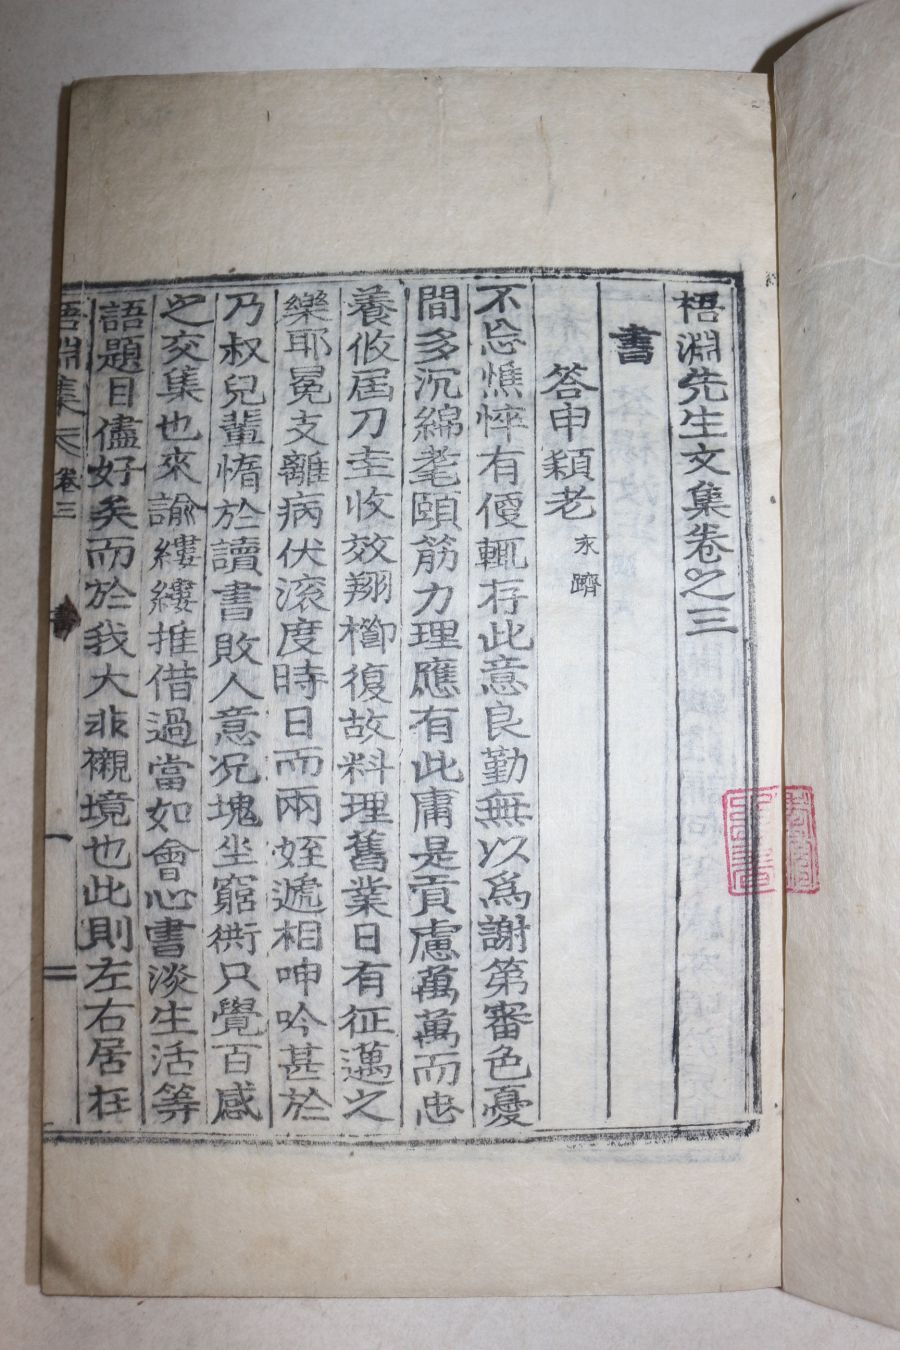 梧淵先生文集卷之三
書
答申穎老 永躋
不忘憔悴有便輒存此意良勤無以爲謝第審色憂
間多沉綿耄頤筋力理應有此庸是貢慮萬萬而忠
養攸屆刀圭收效翔櫛復故料理舊業日有征邁之
樂耶冕支離病伏滚度時日而兩姪遞相呻吟甚於
乃叔兒輩惰於讀書敗人意况塊坐窮衖只覺百感
之交集也來諭縷縷推借過當如會心書淡生活等
語題目儘好矣而於我大非襯境也此則左右居在
梧淵集 卷三 書 一